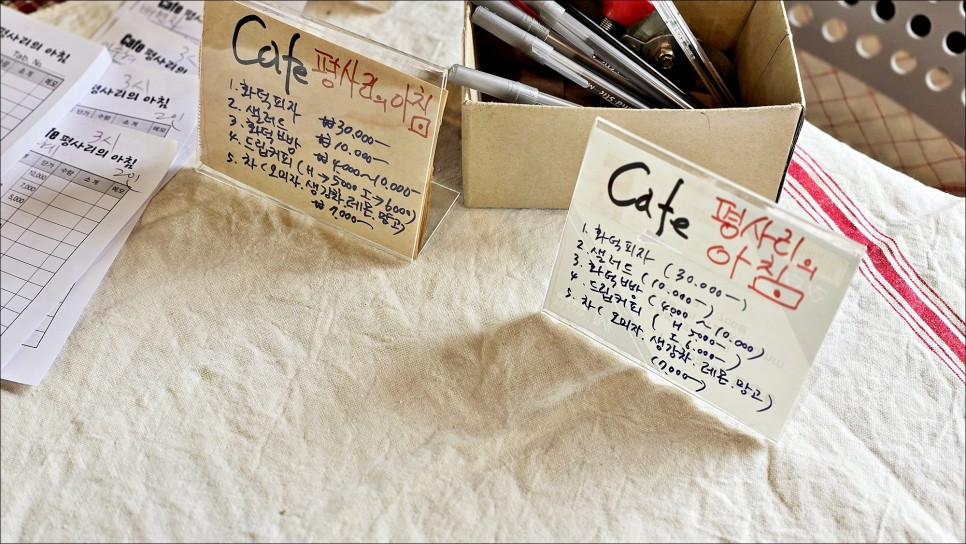 Cafe 평사리의 아침
1. 화덕피자 ₩30.000-
2. 샐러드 ₩10.000-
3. 화덕빵 ₩4000~10.000-
4. 드립커피 (H→5000 I→6000)
5. 차 (오미자.생강차.레몬.망고)
₩7.000-
Cafe 평사리의
아침
1. 화덕피자 (30.000-)
2. 샐러드 (10.000-)
3. 화덕빵 (4000~10.000)
4. 드립커피 (H 5000-
I 6.000-)
5. 차 (오미자.생강차.레몬.망고)
(7.000-)
평사리의 아침
3시
평사리의 아침
3시
평사리의 아침
2인
단가 수량 소계 메모
3시
평사리의 아침
2인
단가 수량 소계 메모
10,000
7,000
5,000